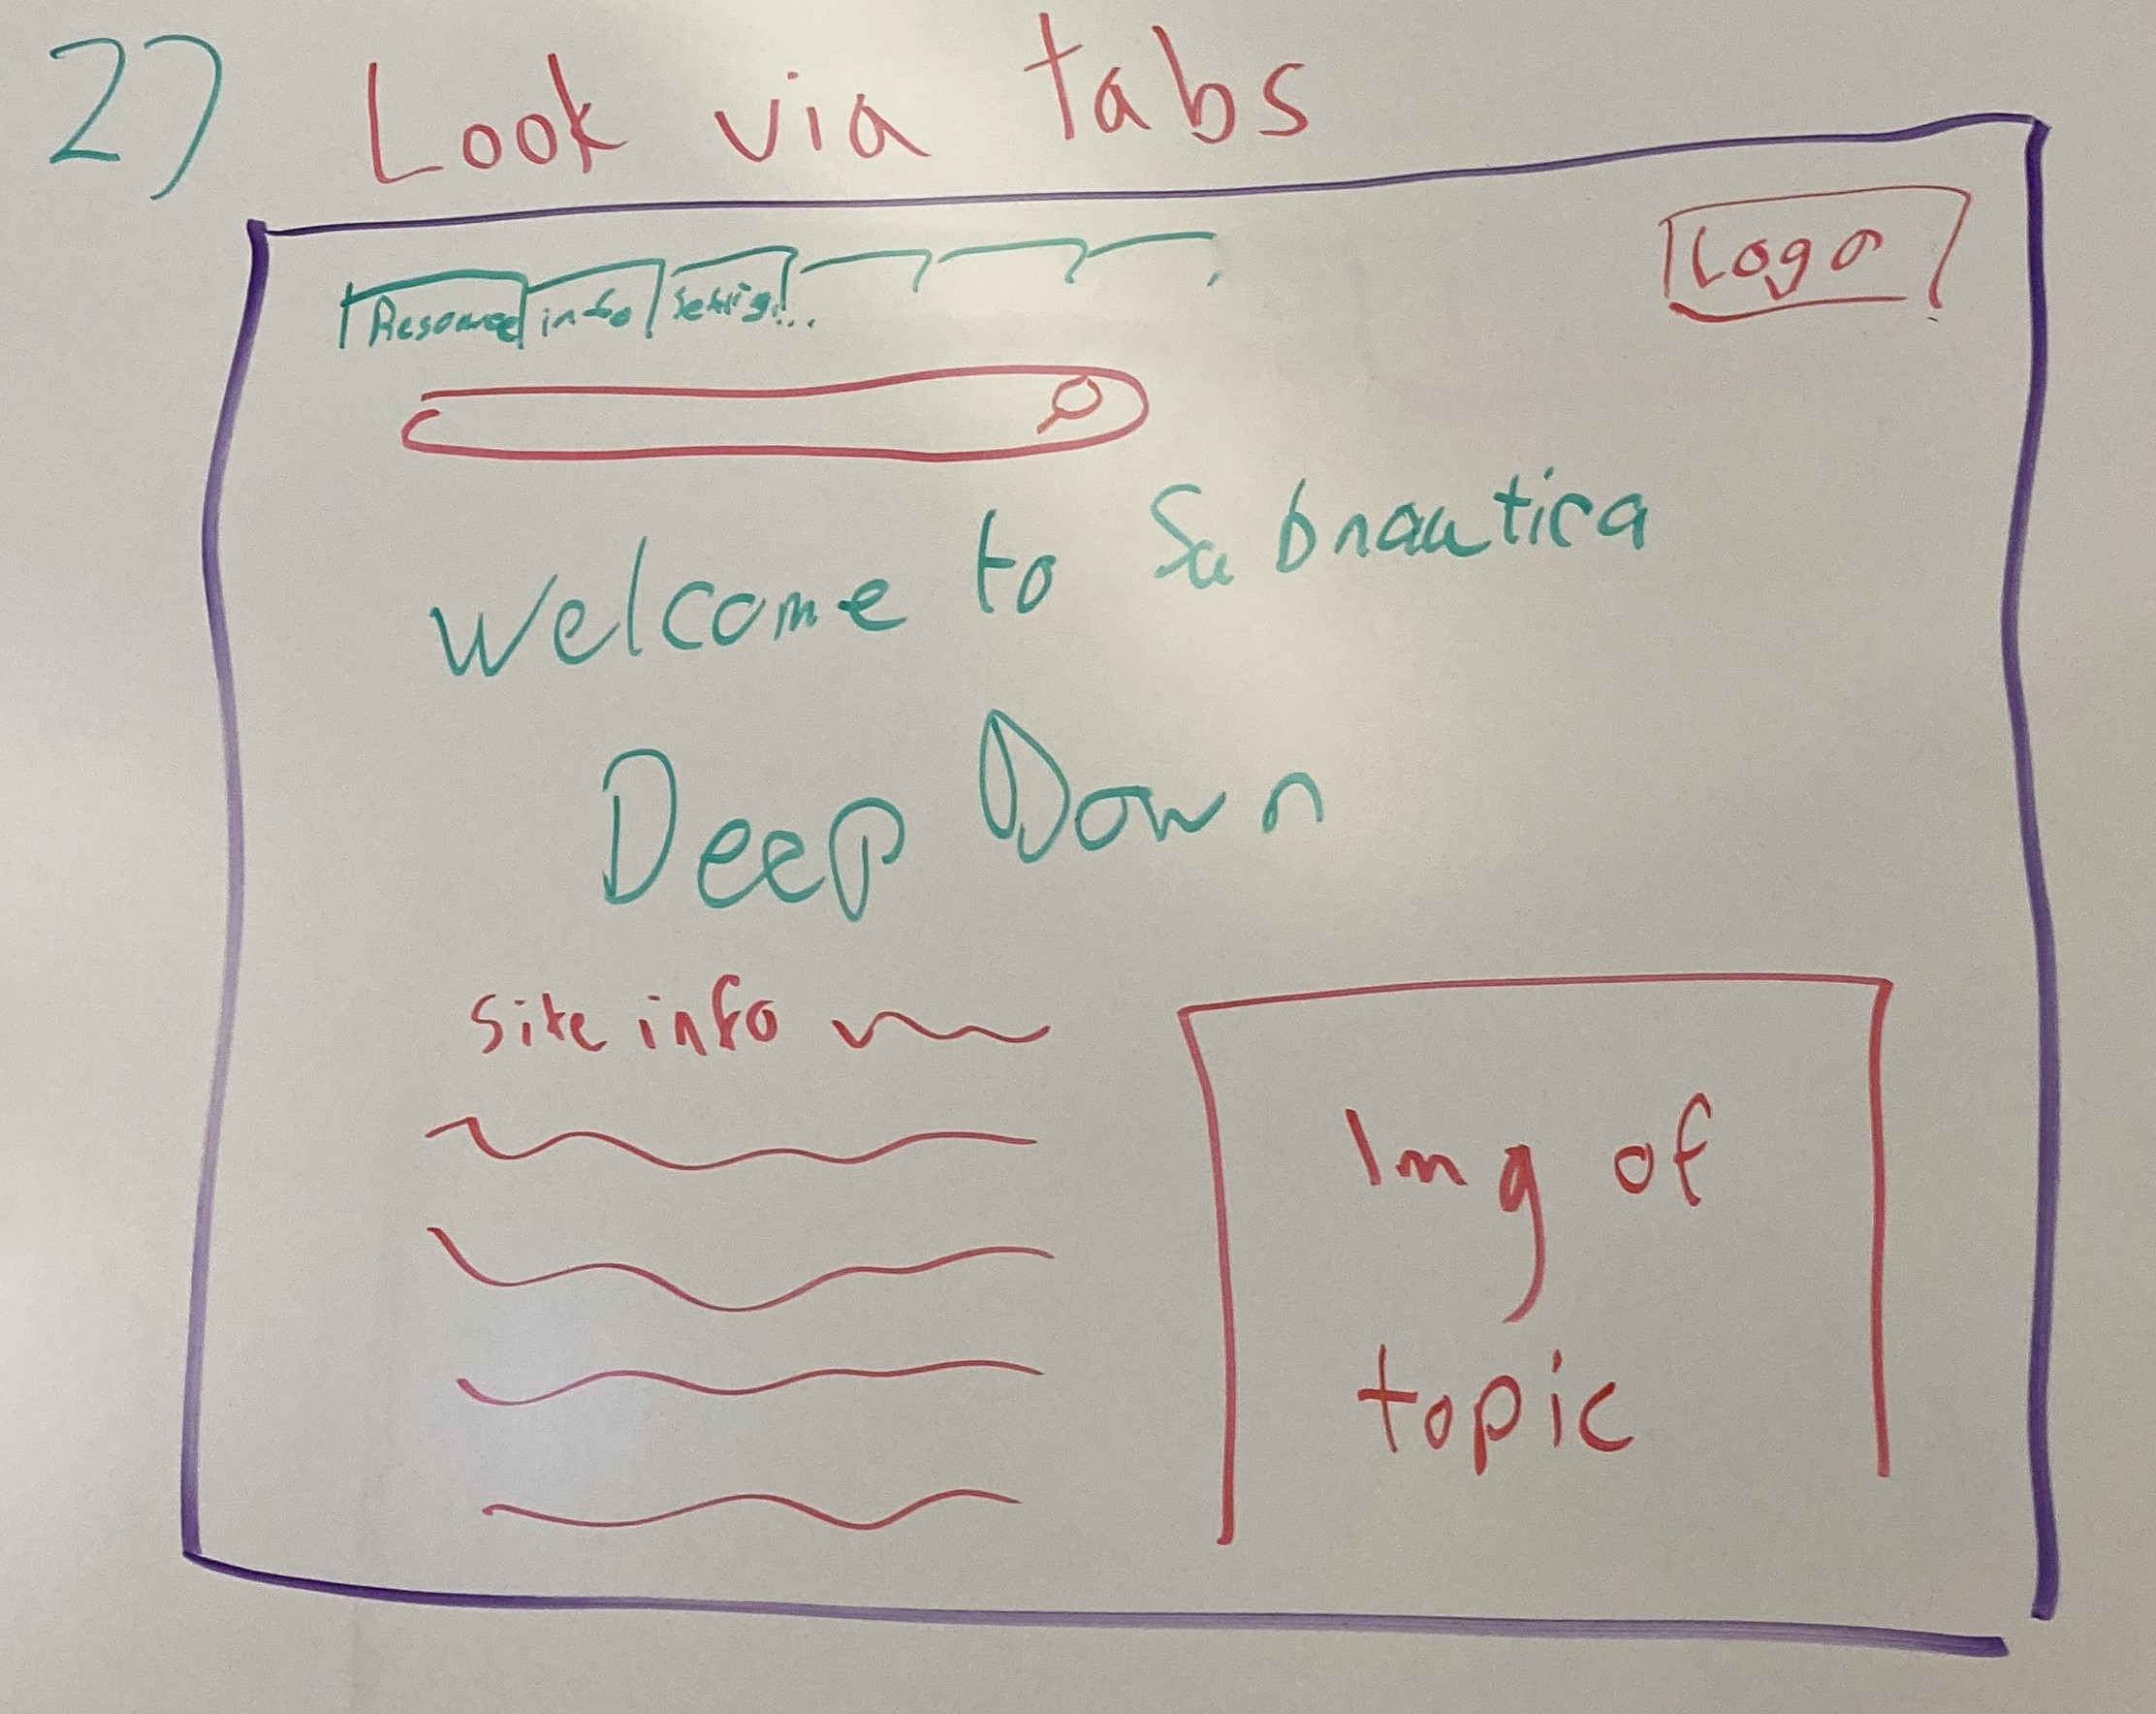 2) Look via tabs
Resource info Setting...
Logo
Welcome to Subnautica
Deep Down
Site info
Img of
topic